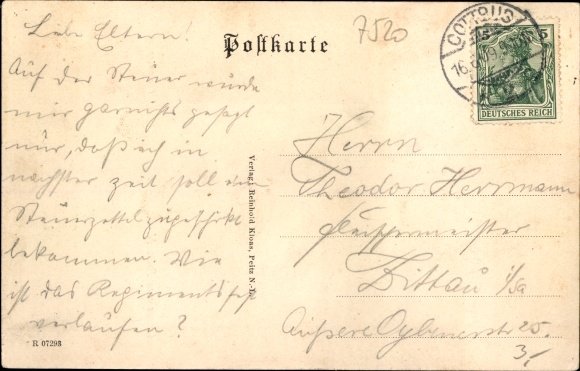 7520
Postkarte
COTTBUS
16.
5
DEUTSCHES REICH
Liebe Eltern!
Auf der Steuer wurde
mir garnichts gesagt
nur, daß ich in
nächster Zeit soll den
Steuerzettel zugeschickt
bekommen. Wie
ist das Regimentsfest
verlaufen?
Verlag: Reinhold Kloas, Peitz N.-L.
Herrn
Theodor Herrmann
Fleischermeister
Zittau i/Sa
Äußere Oybinerstr 25.
3,-
R 07293